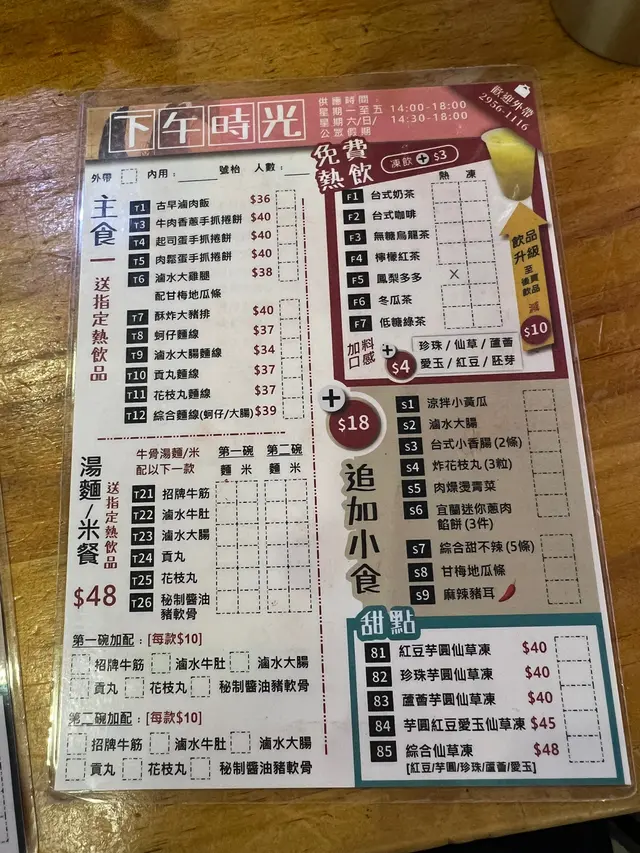 下午時光
供應時間
星期一至五 14:00-18:00
星期六/日/公眾假期 14:30-18:00
歡迎外帶
2956-1116
外帶 內用: 號枱 人數:
主食
送指定熱飲品
T1 古早滷肉飯 $36
T3 牛肉香蔥手抓捲餅 $40
T4 起司蛋手抓捲餅 $40
T5 肉鬆蛋手抓捲餅 $40
T6 滷水大雞腿 $38
配甘梅地瓜條
T7 酥炸大豬排 $40
T8 蚵仔麵線 $37
T9 滷水大腸麵線 $34
T10 貢丸麵線 $37
T11 花枝丸麵線 $37
T12 綜合麵線(蚵仔/大腸) $39
湯麵/米餐
送指定熱飲品
$48
牛骨湯麵/米
配以下一款
第一碗 第二碗
麵 米 麵 米
T21 招牌牛筋
T22 滷水牛肚
T23 滷水大腸
T24 貢丸
T25 花枝丸
T26 秘制醬油
豬軟骨
第一碗加配: [每款$10]
招牌牛筋 滷水牛肚 滷水大腸
貢丸 花枝丸 秘制醬油豬軟骨
第二碗加配: [每款$10]
招牌牛筋 滷水牛肚 滷水大腸
貢丸 花枝丸 秘制醬油豬軟骨
免費熱飲
凍飲 + $3
熱 凍
F1 台式奶茶
F2 台式咖啡
F3 無糖烏龍茶
F4 檸檬紅茶
F5 鳳梨多多 X
F6 冬瓜茶
F7 低糖綠茶
加料口感 + $4
珍珠/仙草/蘆薈
愛玉/紅豆/胚芽
飲品升級
至後頁飲品
減
$10
+ $18
追加小食
S1 涼拌小黃瓜
S2 滷水大腸
S3 台式小香腸(2條)
S4 炸花枝丸(3粒)
S5 肉燥燙青菜
S6 宜蘭迷你蔥肉
餡餅(3件)
S7 綜合甜不辣(5條)
S8 甘梅地瓜條
S9 麻辣豬耳
甜點
81 紅豆芋圓仙草凍 $40
82 珍珠芋圓仙草凍 $40
83 蘆薈芋圓仙草凍 $40
84 芋圓紅豆愛玉仙草凍 $45
85 綜合仙草凍 $48
[紅豆/芋圓/珍珠/蘆薈/愛玉]